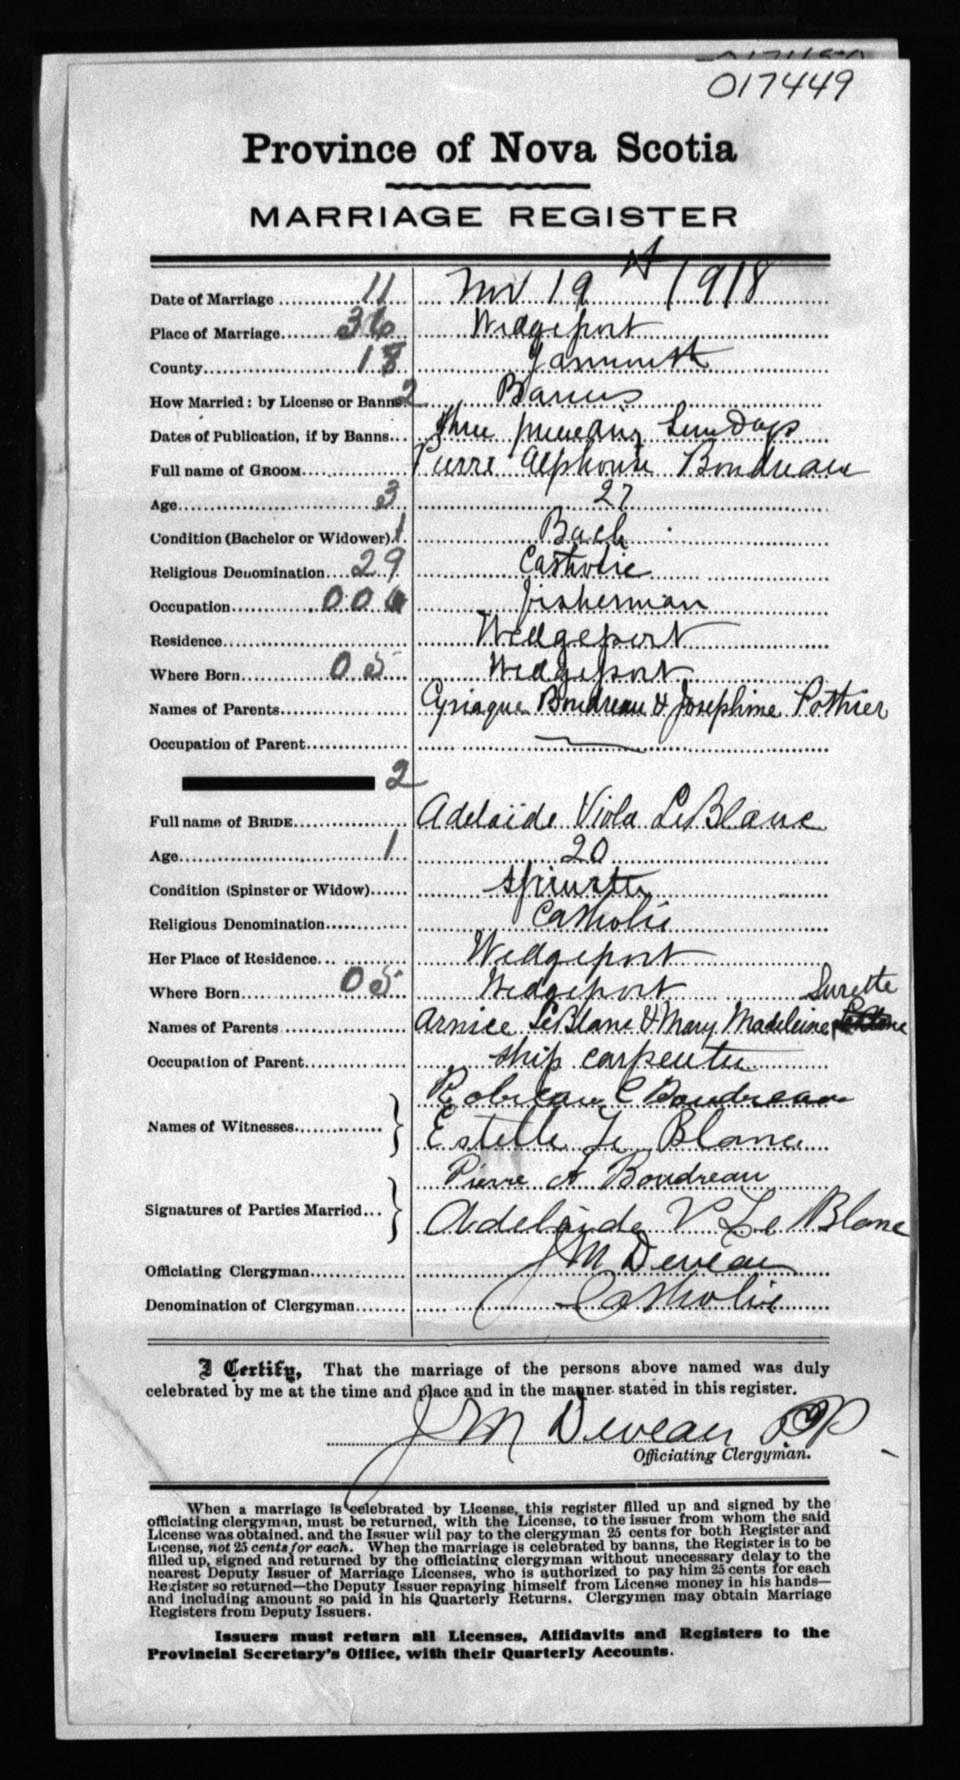 017449
Province of Nova Scotia
MARRIAGE REGISTER
Date of Marriage 11 Nov 19th 1918
Place of Marriage 36 Wedgeport
County 18 Yarmouth
How Married: by License or Banns 2 Banns
Dates of Publication, if by Banns three preceding Sundays
Full name of GROOM Pierre Alphonse Boudreau
Age 3 27
Condition (Bachelor or Widower) 1 Bach
Religious Denomination 29 Catholic
Occupation 00 fisherman
Residence Wedgeport
Where Born 05 Wedgeport
Names of Parents Cyriaque Boudreau & Josephine Pothier
Occupation of Parent
2
Full name of BRIDE Adelaide Viola LeBlanc
Age 1 20
Condition (Spinster or Widow) Spinster
Religious Denomination Catholic
Her Place of Residence Wedgeport
Where Born 05 Wedgeport
Surette
Names of Parents Arnice LeBlanc & Mary Madeleine
Occupation of Parent Ship carpenter
C Boudreau
Names of Witnesses
Estelle Le Blanc
Pierre A Boudreau
Signatures of Parties Married
Adelaide V Le Blanc
Officiating Clergyman J M Deveau
Denomination of Clergyman Catholic
I Certify, That the marriage of the persons above named was duly
celebrated by me at the time and place and in the manner stated in this register.
J M Deveau P.P
Officiating Clergyman.
When a marriage is celebrated by License, this register filled up and signed by the
officiating clergyman, must be returned, with the License, to the issuer from whom the said
License was obtained. and the Issuer will pay to the clergyman 25 cents for both Register and
License, not 25 cents for each. When the marriage is celebrated by banns, the Register is to be
filled up, signed and returned by the officiating clergyman without unecessary delay to the
nearest Deputy Issuer of Marriage Licenses, who is authorized to pay him 25 cents for each
Register so returned—the Deputy Issuer repaying himself from License money in his hands—
and including amount so paid in his Quarterly Returns. Clergymen may obtain Marriage
Registers from Deputy Issuers.
Issuers must return all Licenses, Affidavits and Registers to the
Provincial Secretary's Office, with their Quarterly Accounts.